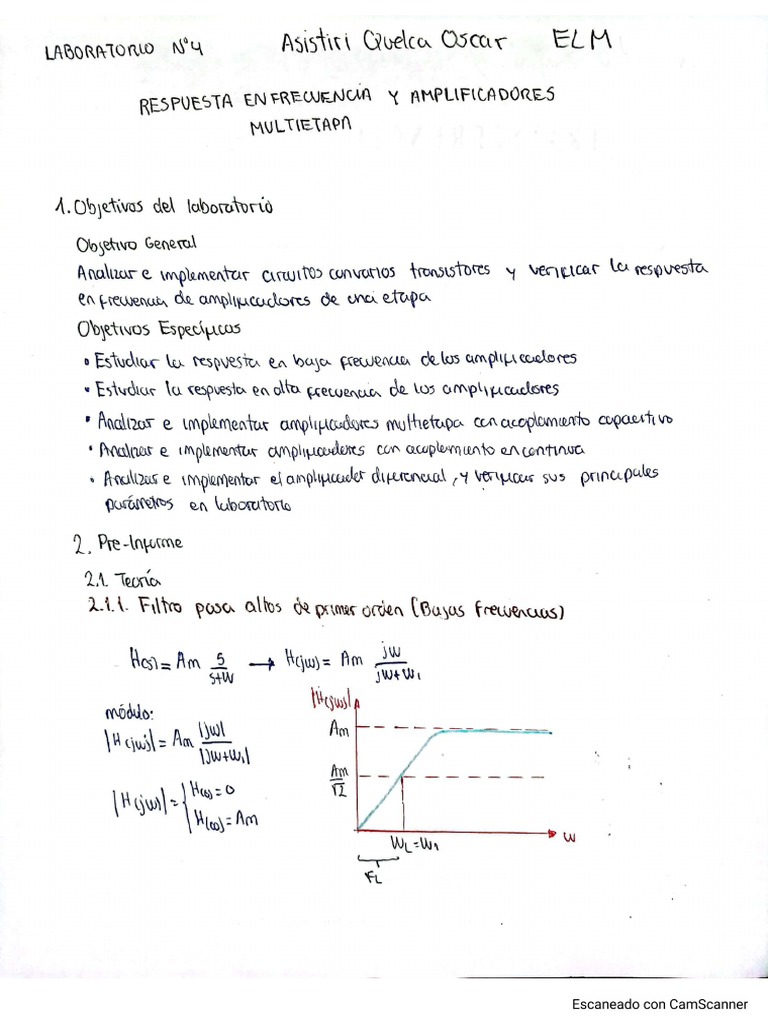 LABORATORIO N°4 Asistiri Quelca Oscar ELM
RESPUESTA EN FRECUENCIA Y AMPLIFICADORES
MULTIETAPA
1. Objetivos del laboratorio
Objetivo General
Analizar e implementar circuitos con varios transistores y verificar la respuesta
en frecuencia de amplificadores de una etapa
Objetivos Específicos
• Estudiar la respuesta en baja frecuencia de los amplificadores
• Estudiar la respuesta en alta frecuencia de los amplificadores
• Analizar e implementar amplificadores multietapa con acoplamiento capacitivo
• Analizar e implementar amplificadores con acoplamiento en continua
• Analizar e implementar el amplificador diferencial, y verificar sus principales
parámetros en laboratorio
2. Pre-Informe
2.1. Teoría
2.1.1. Filtro pasa altos de primer orden (Bajas frecuencias)
H(s) = Am s/(s+w) → H(jw) = Am jw/(jw+w1)
módulo:
|H(jw)| = Am |jw|/|jw+w1|
|H(jw)| = { H(0) = 0
H(∞) = Am
|H(jw)|
Am
Am/√2
WL = W1
w
FL
Escaneado con CamScanner